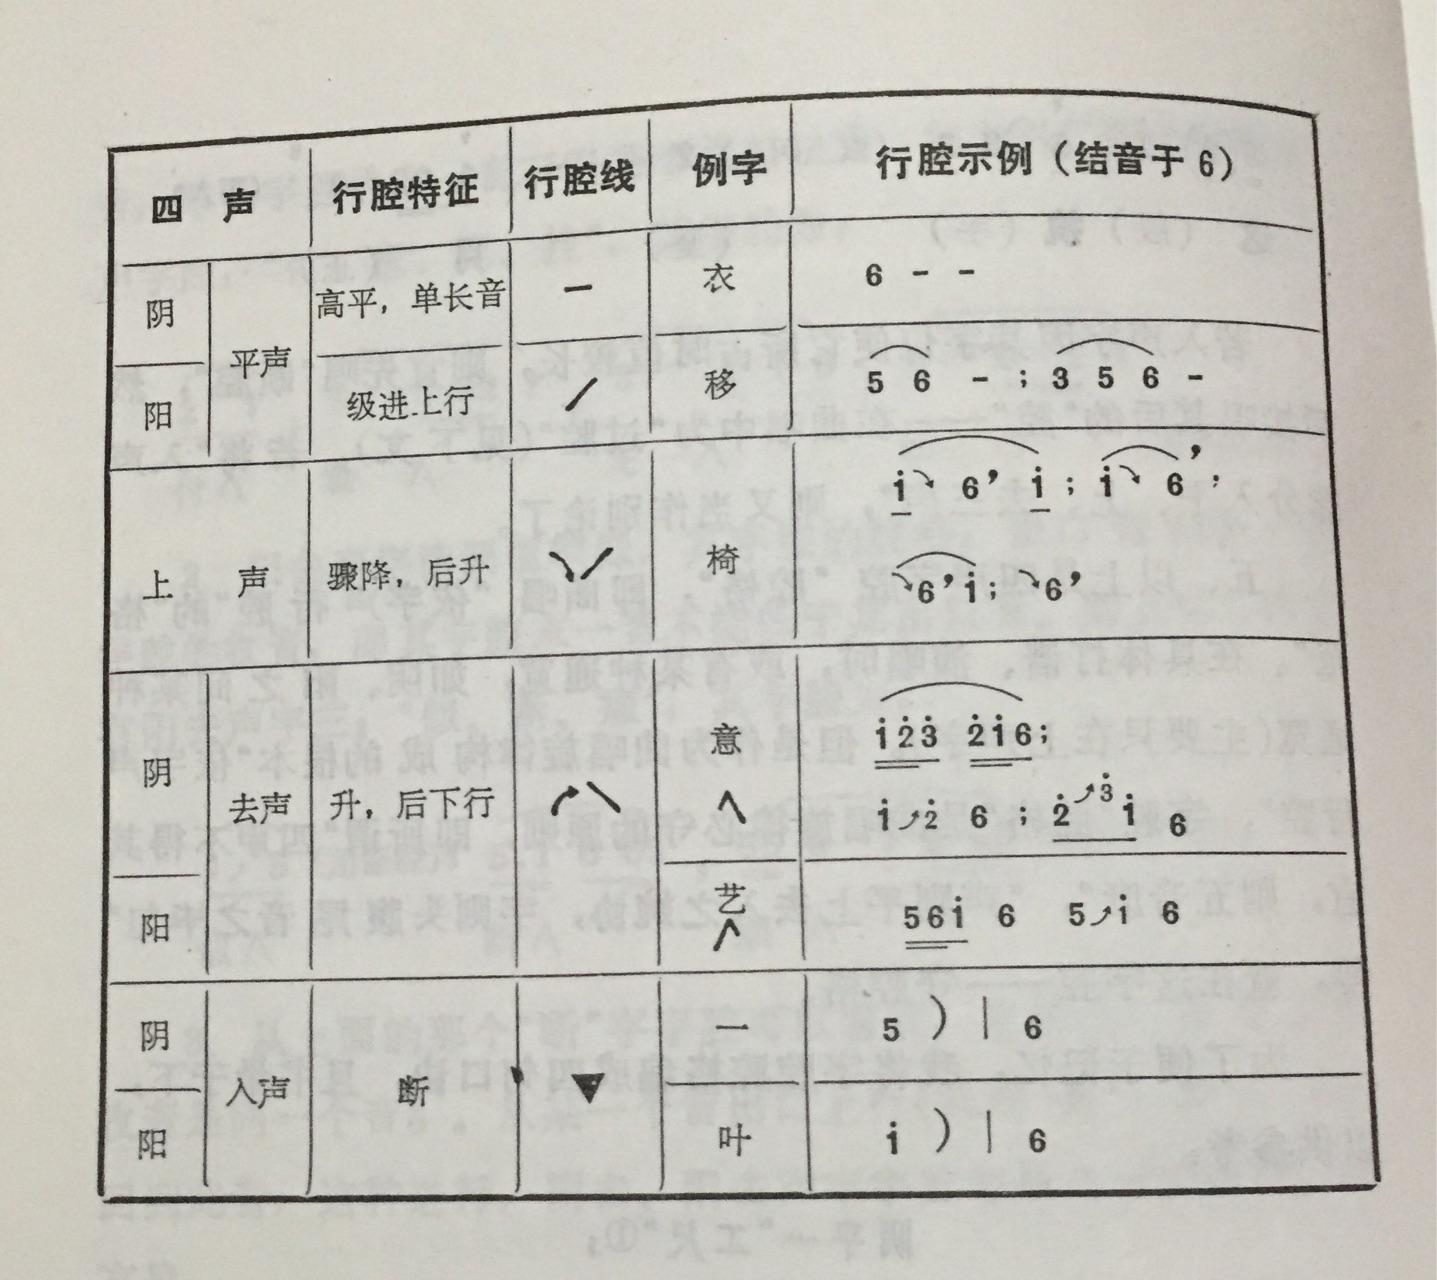 四 声 行腔特征 行腔线 例字 行腔示例（结音于 6）
阴 平声 高平，单长音 衣 6 - -
阳 级进上行 移 5 6 - ; 3 5 6 -
上 声 骤降，后升 椅 i 6’ i ; i 6’ ;
6’ i ; 6’
阴 去声 升，后下行 意 i̇ 2̇ 3̇ 2̇ i̇ 6 ;
i̇ 2̇ 6 ; 2̇ 3̇ i̇ 6
阳 艺 5 6 i̇ 6 5 i̇ 6
阴 入声 断 一 5 ) | 6
阳 叶 i̇ ) | 6